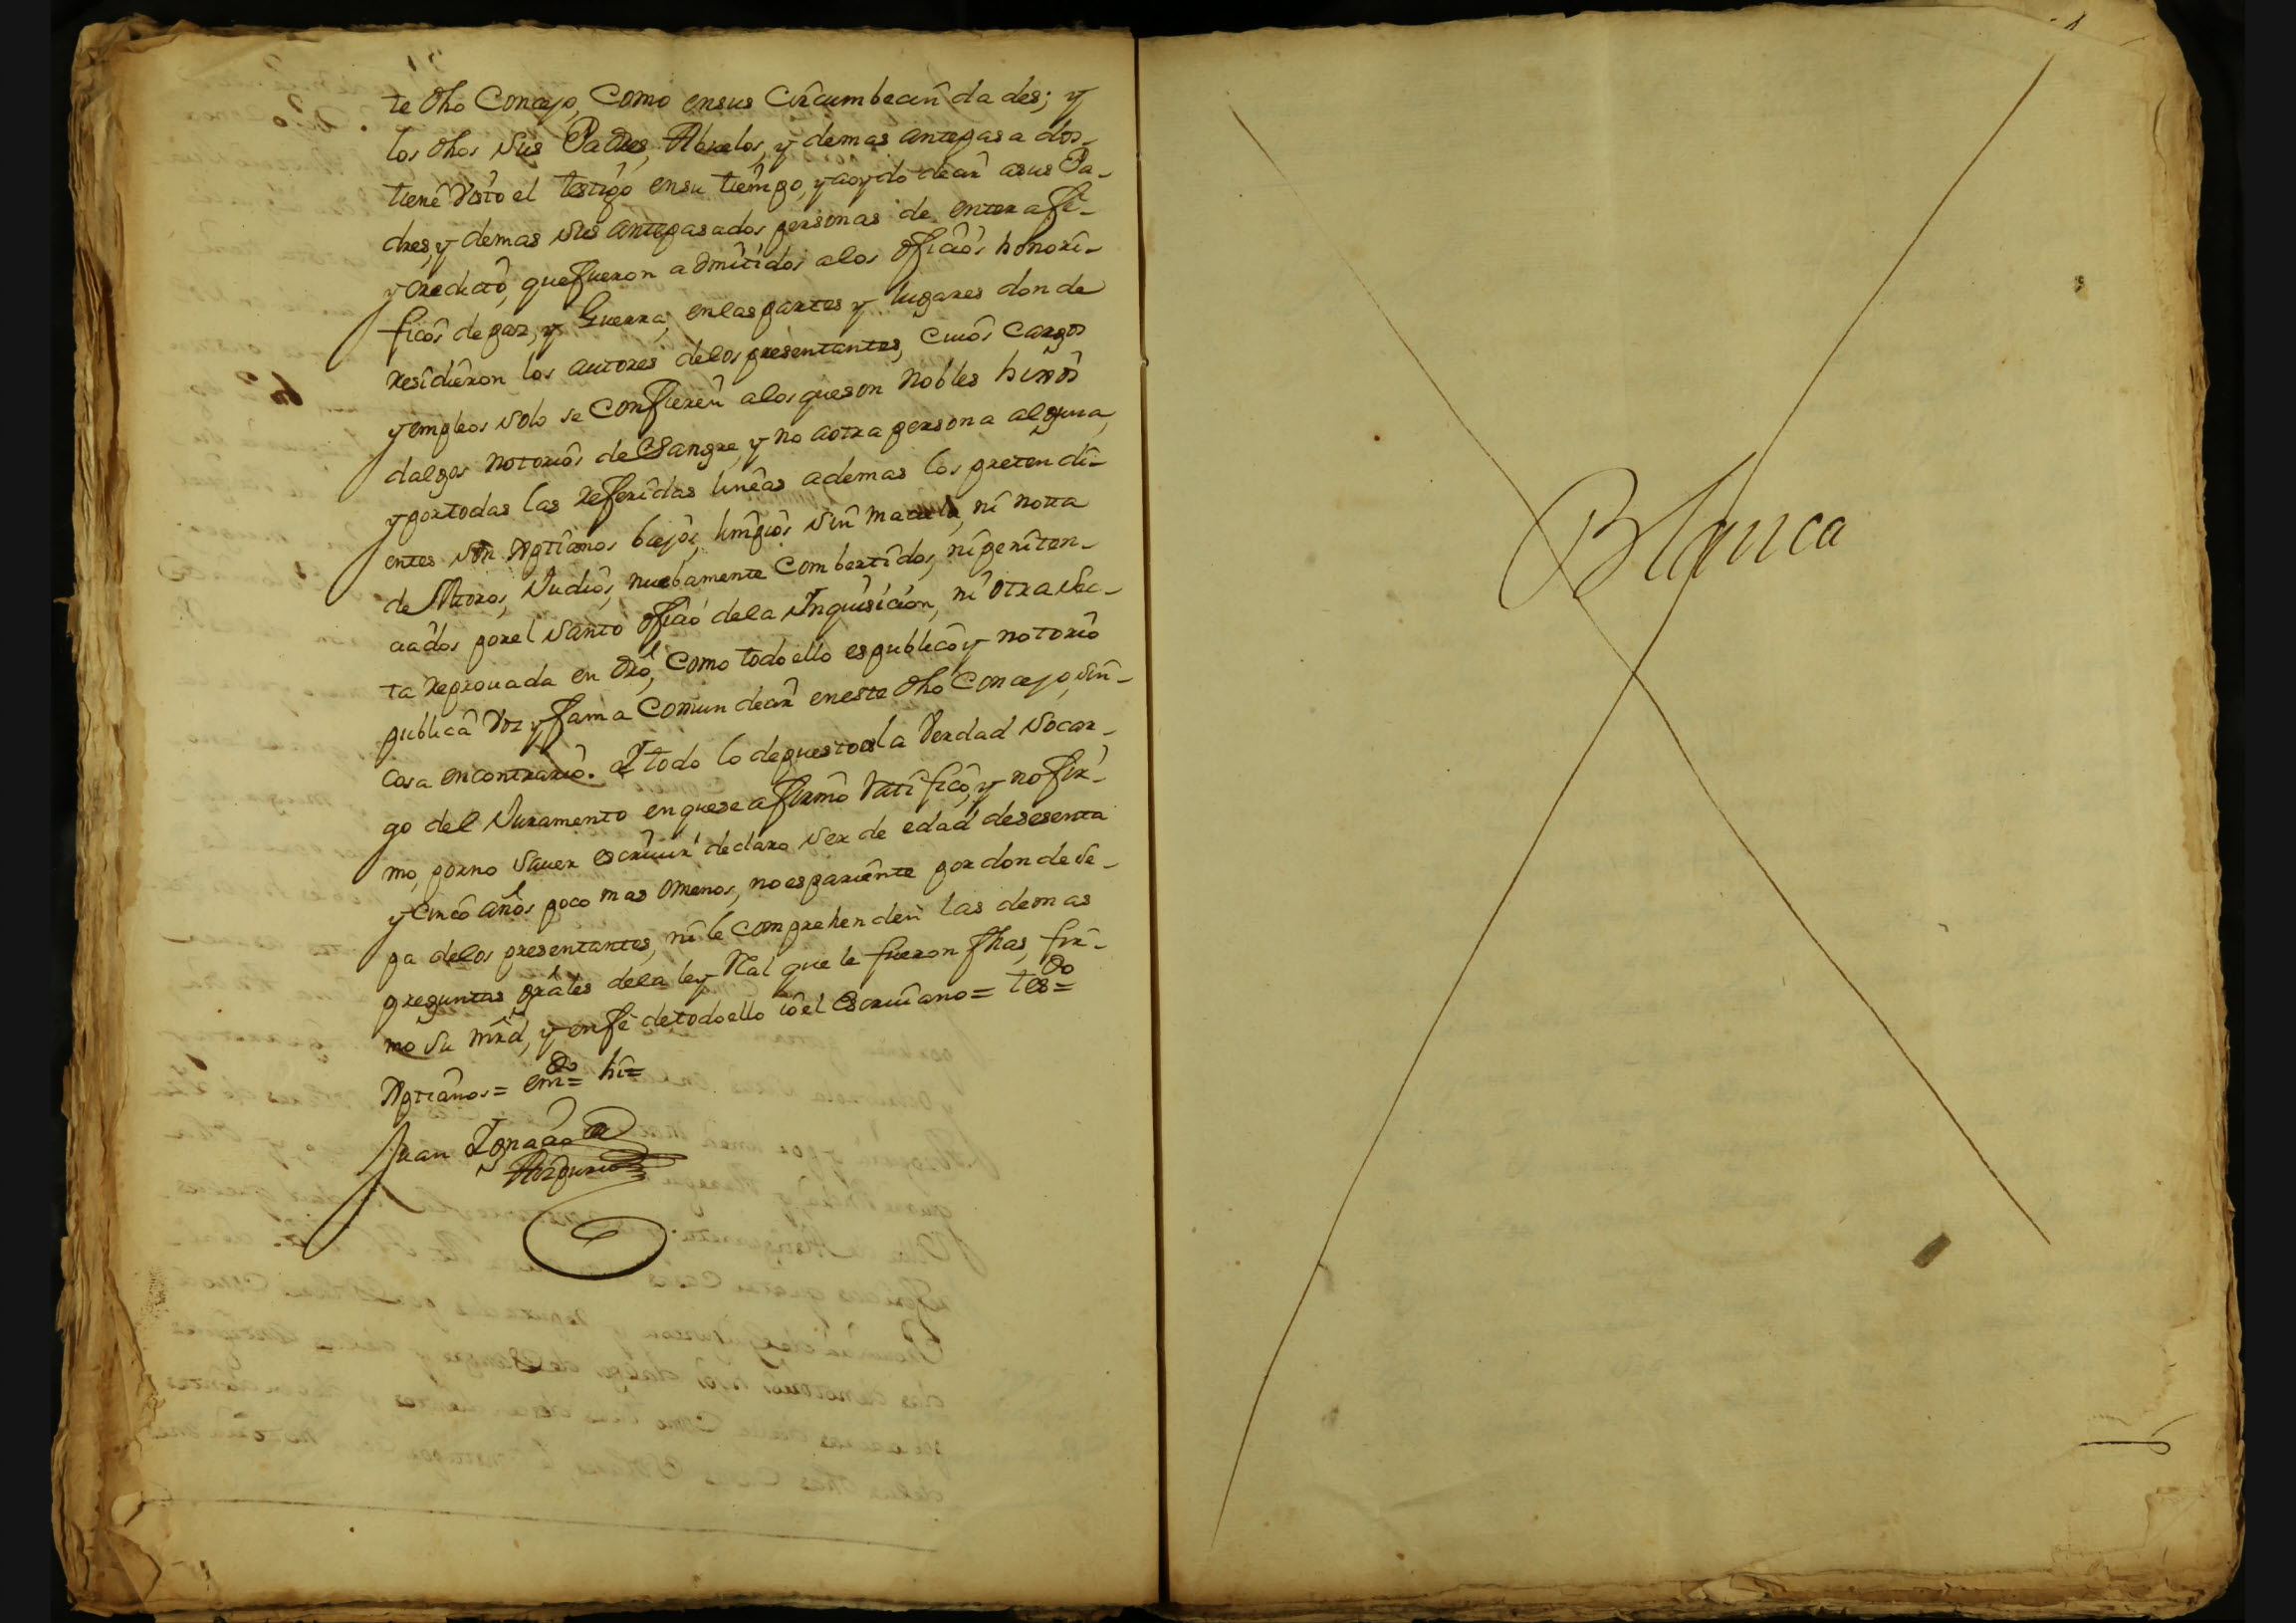 te dho Concejo, Como ensus Circumbecindades; y
los dhos sus Padres, Abuelos, y demas antepasados
tiene visto el testigo ensu tiempo, y aoydo decir asus Pa-
dres, y demas sus antepasados personas de entera fe-
y credito, que fueron admitidos alos oficios honori-
ficos de paz, y Guerra, enlas partes y lugares donde
residieron los autores delos presentantes, cuios cargos
y empleos solo se Confieren alos queson Nobles hijos
dalgos notorios de Sangre, y no aotra persona alguna,
y portodas las referidas lineas ademas los pretendi-
entes son Xptianos biejos, limpios sin macula, ni notta
de Moros, Judios, nuebamente Combertidos, ni peniten-
ciados porel Santo oficio dela Inquisicion, ni otra Sec-
ta reprouada en dro, Como todo ello es publico y notorio
publica voz y fama Comun decir eneste dho Concejo, sin-
cosa encontrario. Y todo lo depuesto es la Verdad Socar-
go del Juramento en que se afirmo ratifico, y no fir-
mo, porno Sauer escriuir declaro ser de edad desesenta
y cinco años poco mas omenos, no es pariente por donde se-
pa delos presentantes, ni le Comprehenden las demas
preguntas grales dela ley Real que le fueron fhas, fir-
mo su mrd, y enfe detodoello io el Escriuano= tesdo=
Xptianos= emdo= hi=
Juan Ignacio de
Blanca